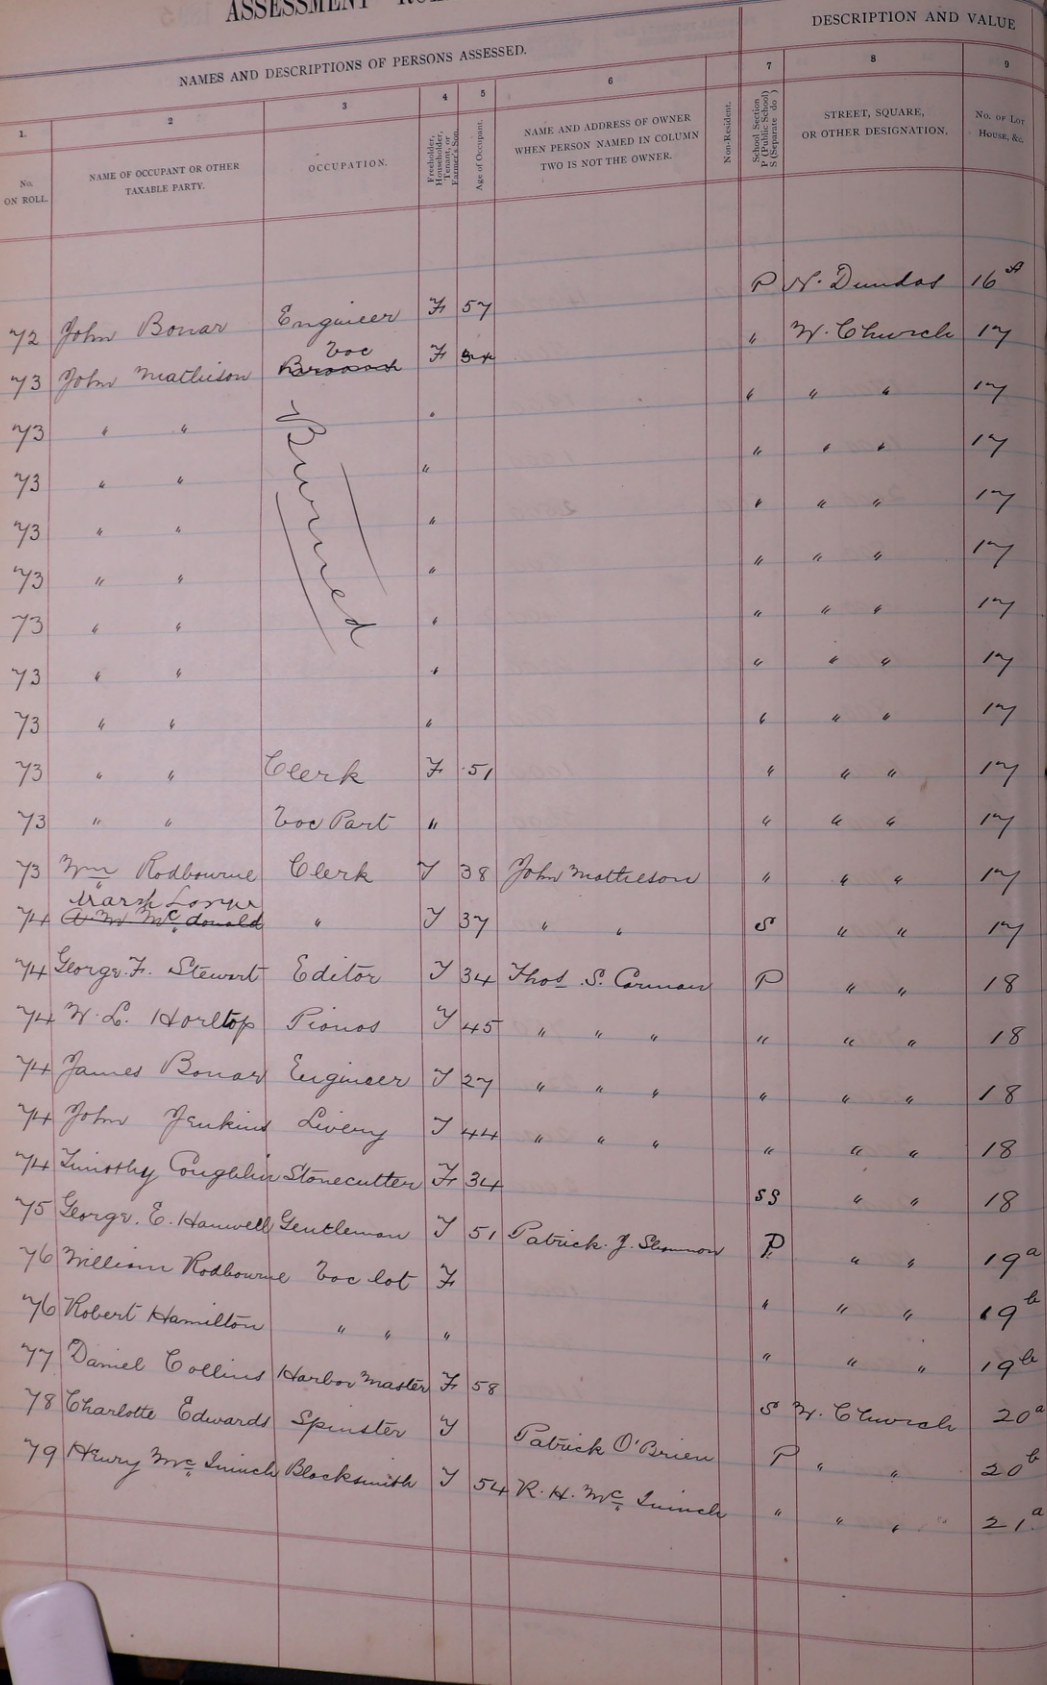 ASSESSMENT
NAMES AND DESCRIPTIONS OF PERSONS ASSESSED.
DESCRIPTION AND VALUE
1. 2 3 4 5 6 7 8 9
No. ON ROLL.
NAME OF OCCUPANT OR OTHER TAXABLE PARTY.
OCCUPATION.
Freeholder, Householder, Tenant, or Farmer's Son.
Age of Occupant.
NAME AND ADDRESS OF OWNER WHEN PERSON NAMED IN COLUMN TWO IS NOT THE OWNER.
Non-Resident.
School Section P (Public School) S (Separate do )
STREET, SQUARE, OR OTHER DESIGNATION.
No. of Lot House, &c.
72 John Bonar Engineer F 57 P N. Dundas 16 A
73 John Mathieson Vac F " W. Church 17
73 " " " " " " 17
73 " " " " " " 17
73 " " " " " " 17
73 " " " " " " 17
73 " " " " " " 17
73 " " " " " " 17
73 " " " " " " 17
Burned
73 " " Clerk F 51 " " " 17
73 " " Vac Part " " " " 17
73 Wm Rodbourne Clerk T 38 John Mathieson " " " 17
74 A M McDonald " T 37 " " S " " 17
74 George F. Stewart Editor T 34 Thos S. Corman P " " 18
74 W. L. Horltop Pianos T 45 " " " " " " 18
74 James Bonar Engineer T 27 " " " " " " 18
74 John Jenkins Livery T 44 " " " " " " 18
74 Timothy Coughlin Stonecutter F 34 SS " " 18
75 George. E. Hanwell Gentleman T 51 Patrick J. Shannon P " " 19 a
76 William Rodbourne Vac lot F " " " 19 b
76 Robert Hamilton " " " " " " 19 b
77 Daniel Collins Harbor Master F 58 S W. Church 20 a
78 Charlotte Edwards Spinster T Patrick O'Brien P " " 20 b
79 Henry McIninch Blacksmith T 54 R. H. McIninch " " " 21 a